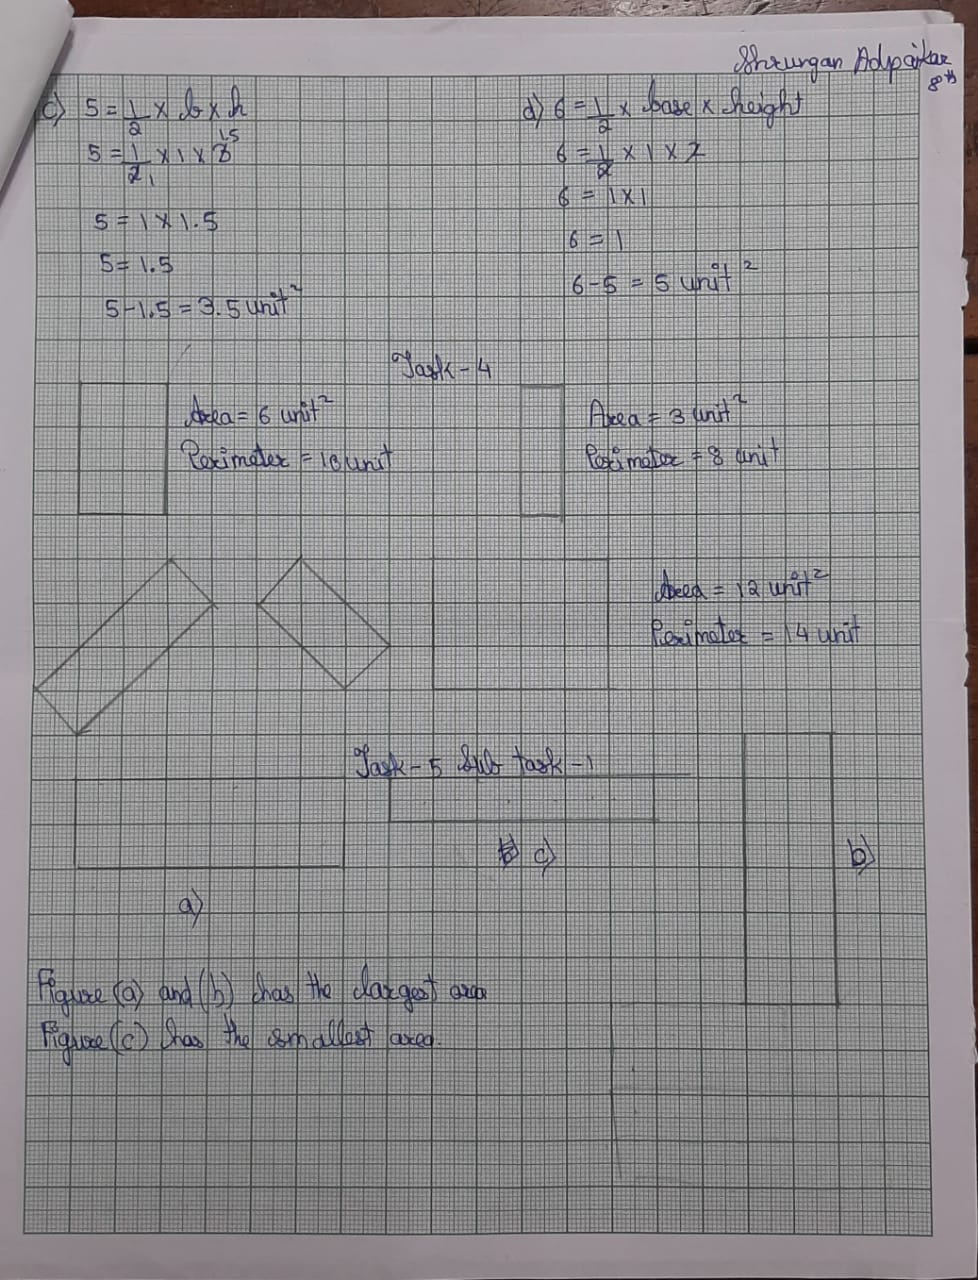 Shrungan Adpaikar
8th
c) 5 = 1/2 × b × h
5 = 1/2 × 1 × 3 1.5
1
5 = 1 × 1.5
5 = 1.5
5 - 1.5 = 3.5 unit²
d) 6 = 1/2 × base × height
6 = 1/2 × 1 × 2
6 = 1 × 1
6 = 1
6 - 5 = 5 unit²
Task - 4
Area = 6 unit²
Perimeter = 10 unit
Area = 3 unit²
Perimeter = 8 unit
Area = 12 unit²
Perimeter = 14 unit
Task - 5 Sub task - 1
c)
b)
a)
Figure (a) and (b) has the largest area
Figure (c) has the smallest area.